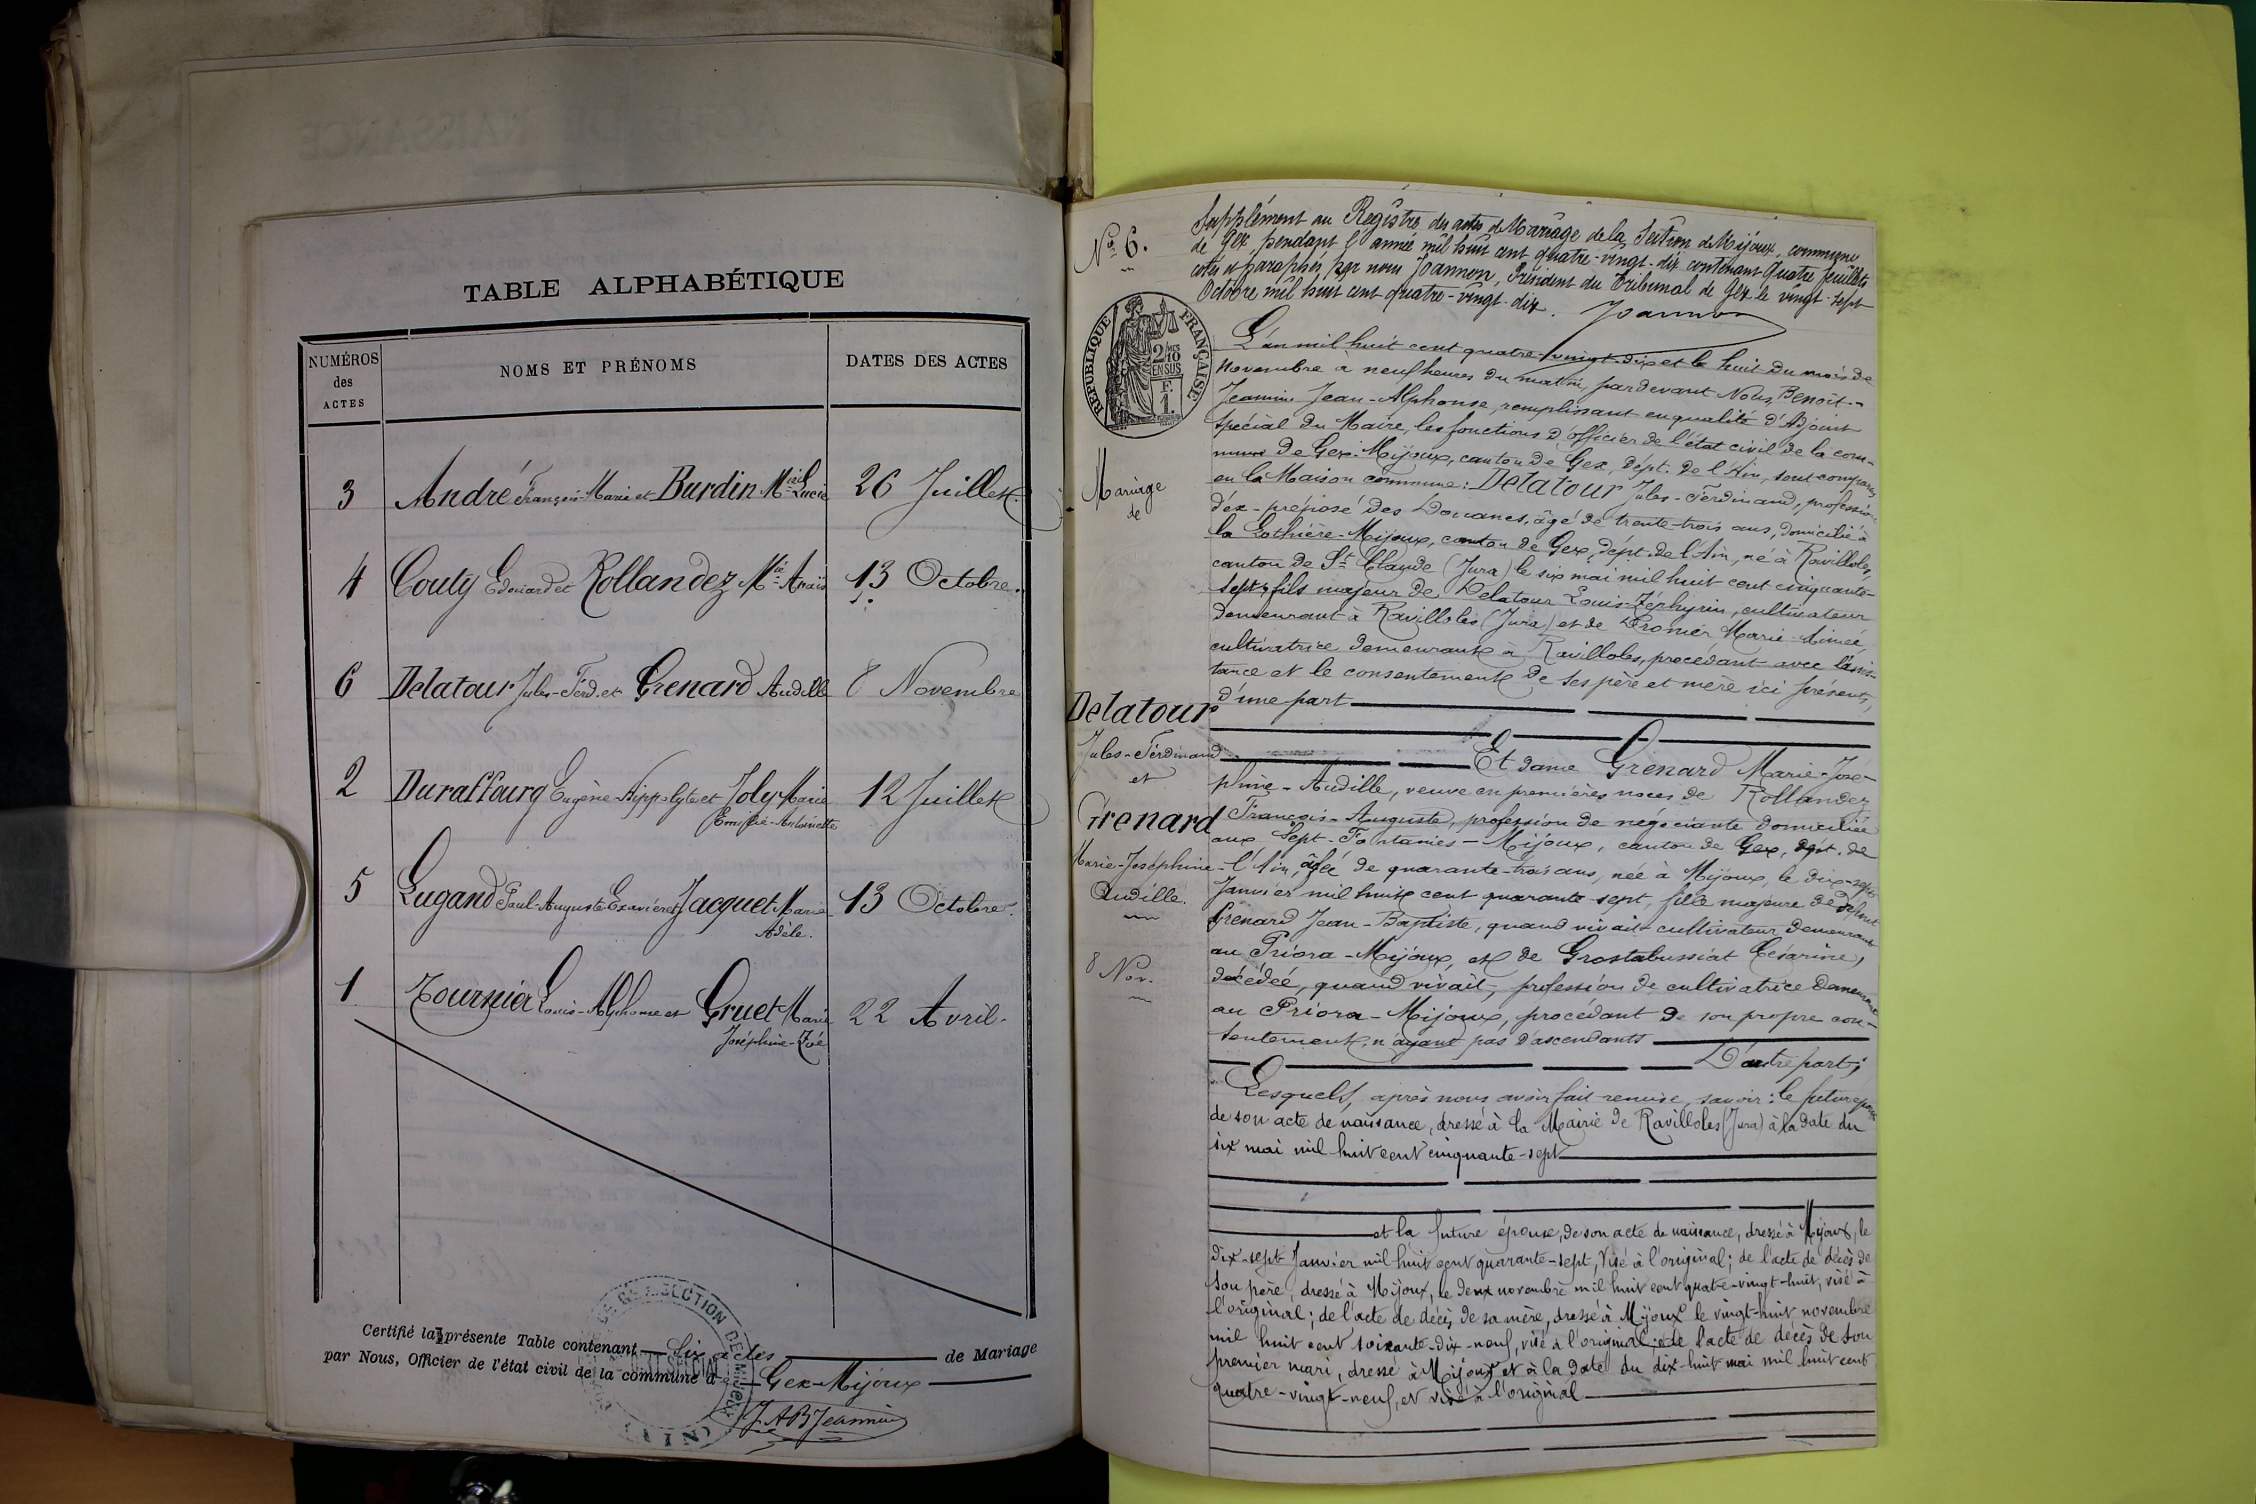 TABLE ALPHABÉTIQUE
NUMÉROS des ACTES
NOMS ET PRÉNOMS
DATES DES ACTES
3 André François-Marie et Burdin Mie Lucie 26 Juillet.
4 Couty Edouard et Rollandez Mie Anaïs 13 Octobre.
6 Delatour Jules-Ferd. et Grenard Audille 8 Novembre
2 Duraffourg Eugène-Hippolyte et Joly Marie 12 Juillet
Emilie-Antoinette
5 Lugand Paul-Auguste-Exavier et Jacquet Marie 13 Octobre.
Adèle.
1 Tournier Louis-Alphonse et Gruet Marie 22 Avril.
Joséphine-Zoé
Certifié la présente Table contenant Six actes de Mariage
par Nous, Officier de l'état civil de la commune d Gex-Mijoux
J.A.B. Jeannin
No 6.
Supplément au Registre des actes de Mariage de la Section de Mijoux, commune
de Gex pendant l'année mil huit cent quatre-vingt-dix contenant Quatre feuillets
cotés et paraphés par nous Joannon, Président du Tribunal de Gex le vingt-sept
Octobre mil huit cent quatre-vingt-dix. Joannon
RÉPUBLIQUE FRANÇAISE
2/10 EN SUS
F. 1.
Mariage
de
Delatour
Jules-Ferdinand
et
Grenard
Marie-Joséphine-
Audille.
8 Nov.
L'an mil huit cent quatre-vingt-dix et le huit du mois de
Novembre à neuf heures du matin, pardevant Nous, Benoit-
Jeannin Jean-Alphonse, remplissant en qualité d'Adjoint
spécial du Maire, les fonctions d'officier de l'état civil de la com-
mune de Gex-Mijoux, canton de Gex, dépt. de l'Ain, sont comparus
en la Maison commune: Delatour Jules-Ferdinand, profession
d'ex-préposé des Douanes, âgé de trente-trois ans, domicilié à
la Lothière-Mijoux, canton de Gex, dépt. de l'Ain, né à Ravilloles,
canton de St Claude (Jura) le six mai mil huit cent cinquante-
sept, fils majeur de Delatour Louis-Zéphyrin, cultivateur
demeurant à Ravilloles (Jura) et de Promier Marie-Aimée,
cultivatrice demeurant à Ravilloles, procédant avec l'assis-
tance et le consentement de ses père et mère ici présents,
d'une part
Et dame Grenard Marie-José-
phine-Audille, veuve en premières noces de Rollandez
François-Auguste, profession de négociante domiciliée
aux Sept-Fontaines-Mijoux, canton de Gex, dépt. de
l'Ain, âgée de quarante-trois ans, née à Mijoux, le dix-sept
Janvier mil huit cent quarante-sept, fille majeure de défunt
Grenard Jean-Baptiste, quand vivait cultivateur demeurant
au Priora-Mijoux, et de Grostabussiat Césarine,
décédée, quand vivait, profession de cultivatrice demeurant
au Priora-Mijoux, procédant de son propre con-
sentement, n'ayant pas d'ascendants
D'autre part;
Lesquels, après nous avoir fait remise, savoir: le futur époux
de son acte de naissance, dressé à la Mairie de Ravilloles (Jura) à la date du
six mai mil huit cent cinquante-sept
et la future épouse, de son acte de naissance, dressé à Mijoux, le
dix-sept Janvier mil huit cent quarante-sept, visé à l'original; de l'acte de décès de
son père, dressé à Mijoux, le deux novembre mil huit cent quatre-vingt-huit, visé à
l'original; de l'acte de décès de sa mère, dressé à Mijoux le vingt-huit novembre
mil huit cent soixante-dix-neuf, visé à l'original; de l'acte de décès de son
premier mari, dressé à Mijoux et à la date du dix-huit mai mil huit cent
quatre-vingt-neuf, et visé à l'original